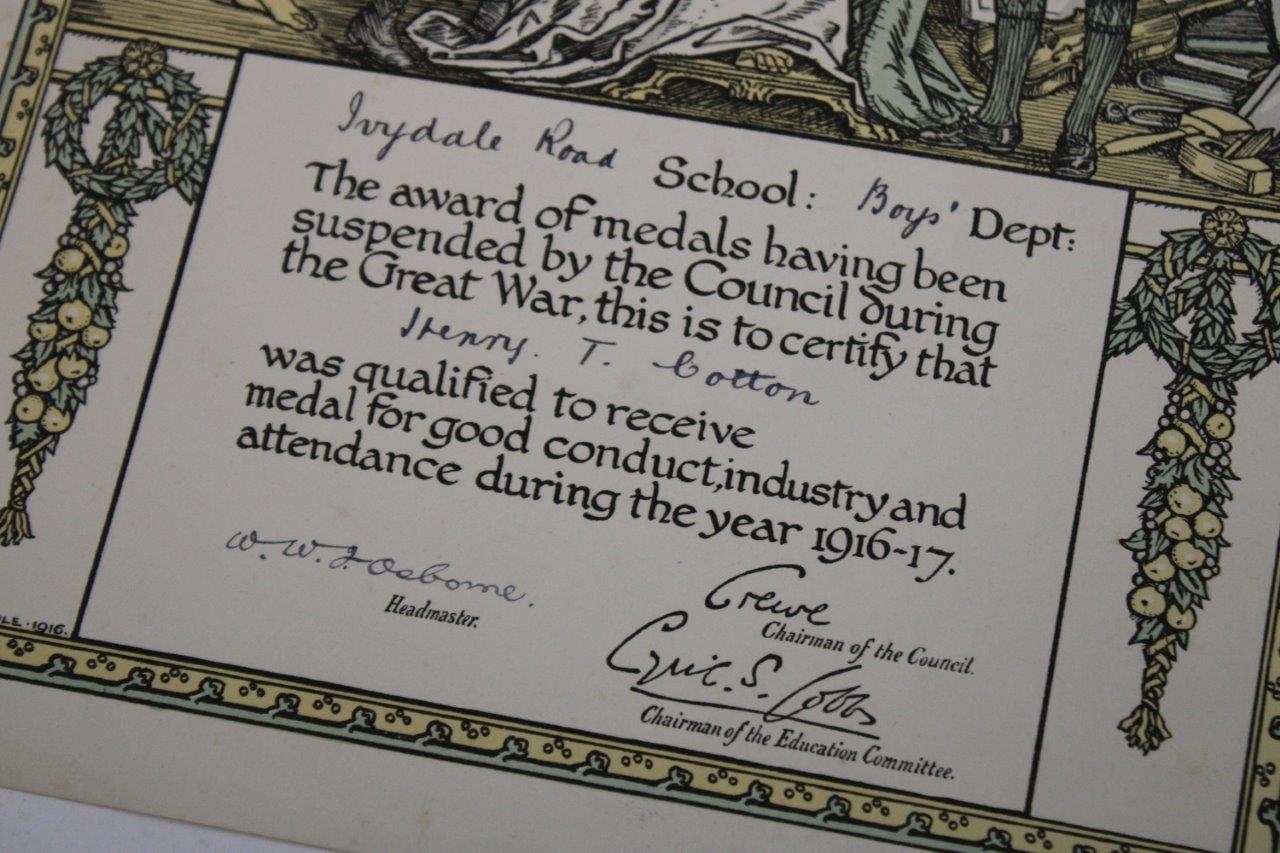 Ivydale Road School: Boys' Dept:
The award of medals having been
suspended by the Council during
the Great War, this is to certify that
Henry. T. Cotton
was qualified to receive
medal for good conduct, industry and
attendance during the year 1916-17.
W. W. J. Osborne.
Headmaster.
Crewe
Chairman of the Council.
Cyril. S. Cobb
Chairman of the Education Committee.
LE · 1916.